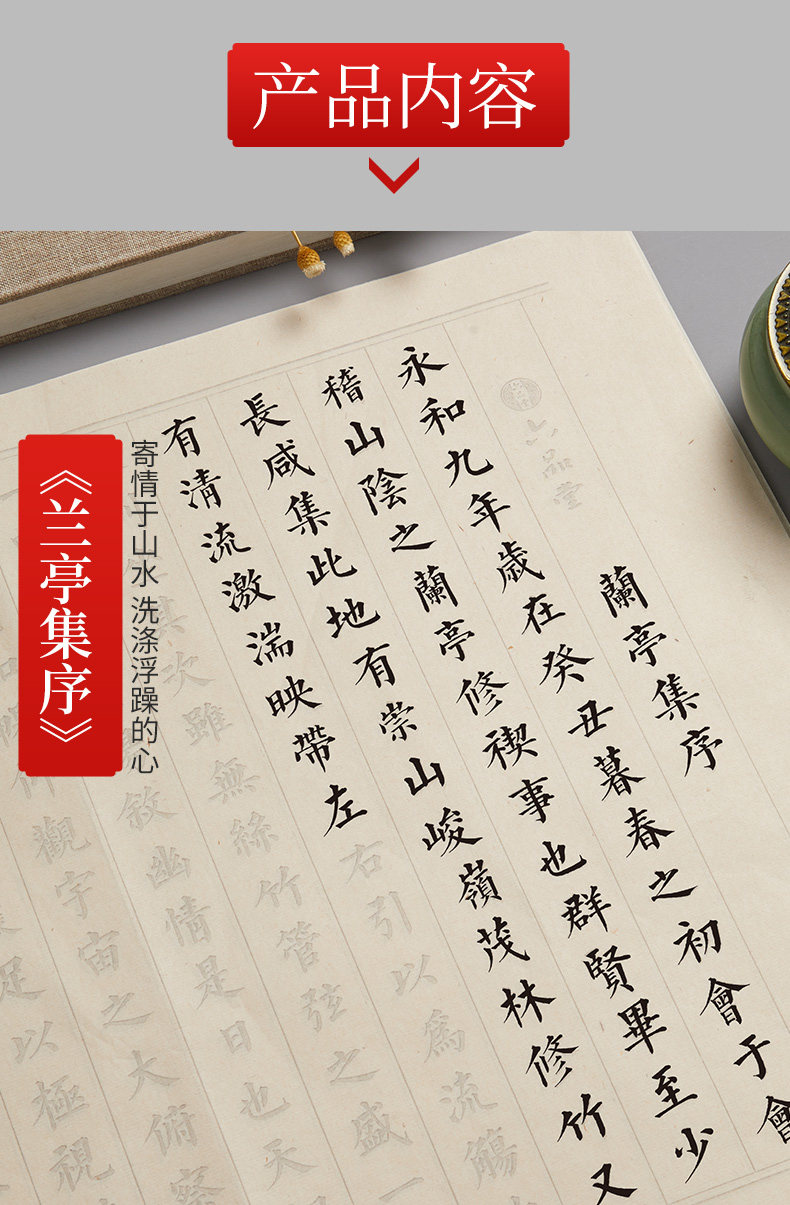 产品内容
《兰亭集序》
寄情于山水 洗涤浮躁的心
六品堂
蘭亭集序
永和九年歲在癸丑暮春之初會于會
稽山陰之蘭亭修禊事也群賢畢至少
長咸集此地有崇山峻嶺茂林修竹又
有清流激湍映帶左右引以爲流觴
其次雖無絲竹管弦之盛一
敘幽情是日也天
仰觀宇宙之大俯察
足以極視